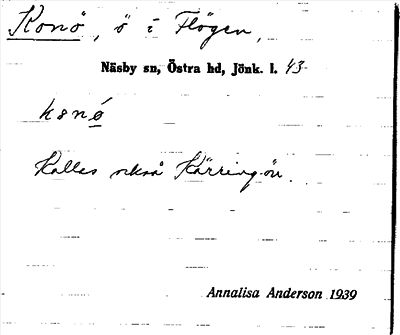 Konö, ö i Flögen,
Näsby sn, Östra hd, Jönk. l. 43
Kallas också Kärringön.
Annalisa Anderson 1939